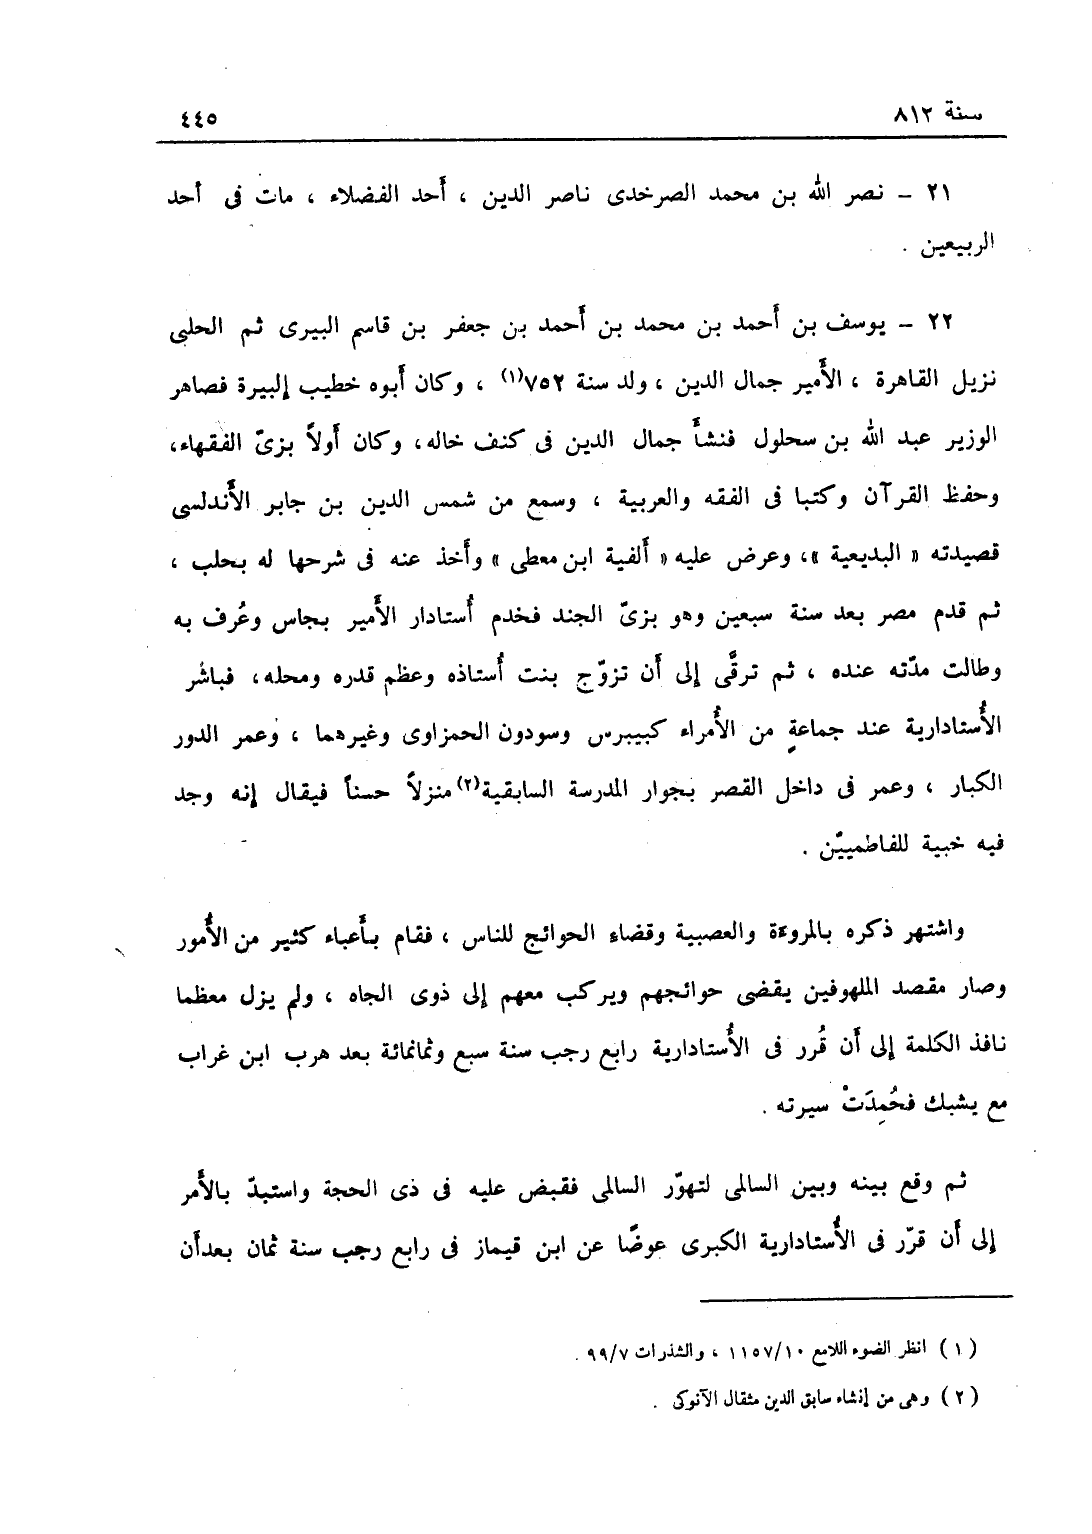 سنة ٨١٢
٤٤٥
٢١ – نصر الله بن محمد الصرخدى ناصر الدين ، أَحد الفضلاء ، مات فى أحد
الربيعين .
٢٢ – يوسف بن أَحمد بن محمد بن أَحمد بن جعفر بن قاسم البيرى ثم الحلبى
نزيل القاهرة ، الأَمير جمال الدين ، ولد سنة ٧٥٢(١) ، وكان أَبوه خطيب إلبيرة فصاهر
الوزير عبد الله بن سحلول فنشأَ جمال الدين فى كنف خاله، وكان أَولاً بزىّ الفقهاء،
وحفظ القرآن وكتبا فى الفقه والعربية ، وسمع من شمس الدين بن جابر الأَندلسى
قصيدته « البديعية »، وعرض عليه « أَلفية ابن معطى » وأَخذ عنه فى شرحها له بحلب ،
ثم قدم مصر بعد سنة سبعين وهو بزىّ الجند فخدم أُستادار الأَمير بجاس وعُرف به
وطالت مدّته عنده ، ثم ترقَّى إلى أَن تزوّج بنت أُستاذه وعظم قدره ومحله، فباشر
الأُستادارية عند جماعةٍ من الأُمراء كبيبرس وسودون الحمزاوى وغيرهما ، وعمر الدور
الكبار ، وعمر فى داخل القصر بجوار المدرسة السابقية(٢) منزلاً حسناً فيقال إنه وجد
فيه خبية للفاطميّين .
واشتهر ذكره بالمروءة والعصبية وقضاء الحوائج للناس ، فقام بأَعباء كثير من الأُمور
وصار مقصد الملهوفين يقضى حوائجهم ويركب معهم إلى ذوى الجاه ، ولم يزل معظما
نافذ الكلمة إلى أَن قُرر فى الأُستادارية رابع رجب سنة سبع وثمانمائة بعد هرب ابن غراب
مع يشبك فحُمِدَتْ سيرته .
ثم وقع بينه وبين السالمى لتهوّر السالمى فقبض عليه فى ذى الحجة واستبدّ بالأَمر
إلى أَن قرّر فى الأُستادارية الكبرى عوضًا عن ابن قيماز فى رابع رجب سنة ثمان بعد أَن
(١) انظر الضوء اللامع ١١٥٧/١٠ ، والشذرات ٩٩/٧ .
(٢) وهى من إنشاء سابق الدين مثقال الآنوكى .